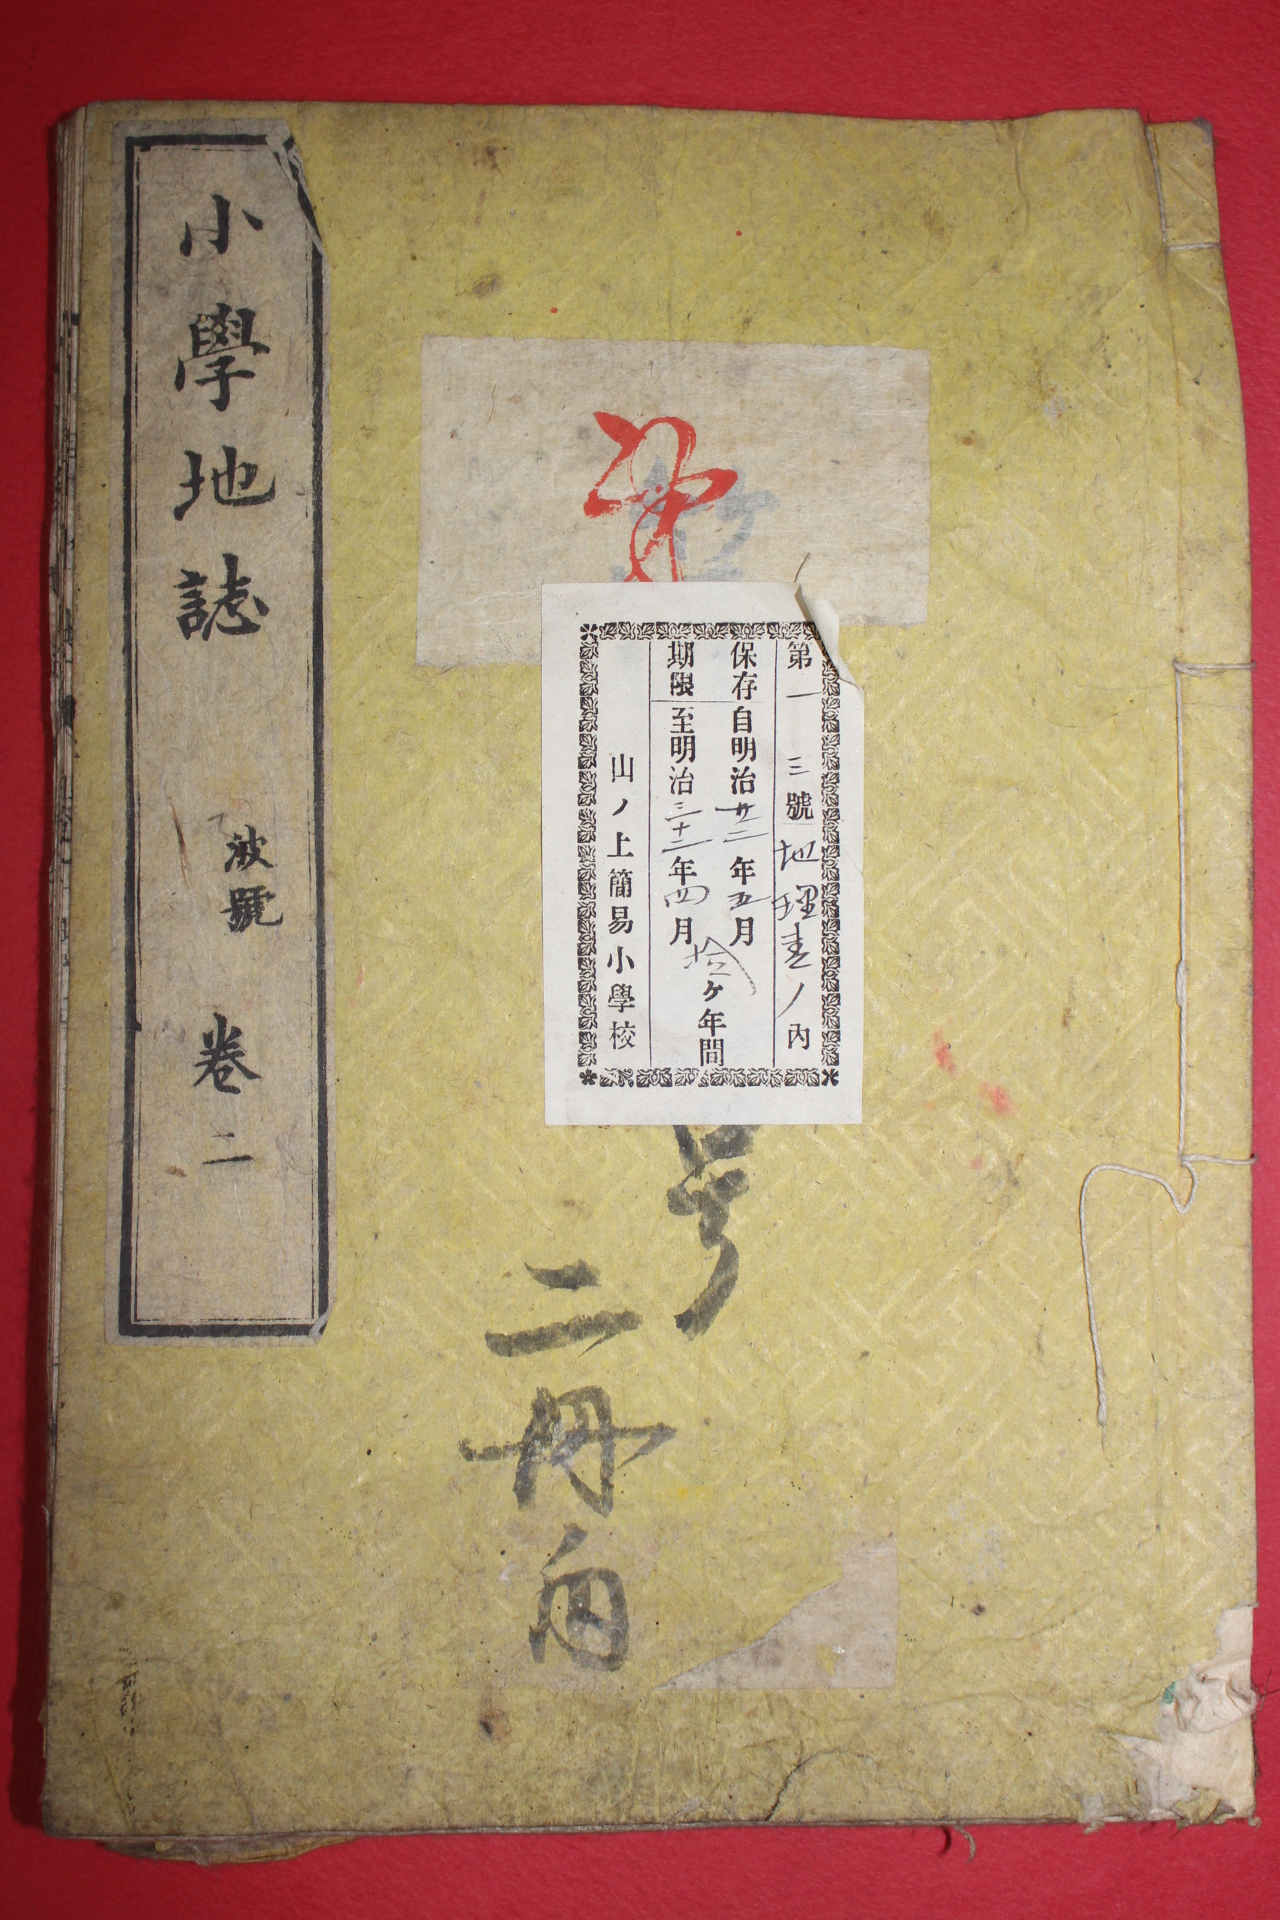 第一三號地理書ノ內
保存自明治廿二年五月
期限至明治三十二年四月
拾ヶ年間
山ノ上簡易小學校
号
二冊內
小學地誌
波號
卷二